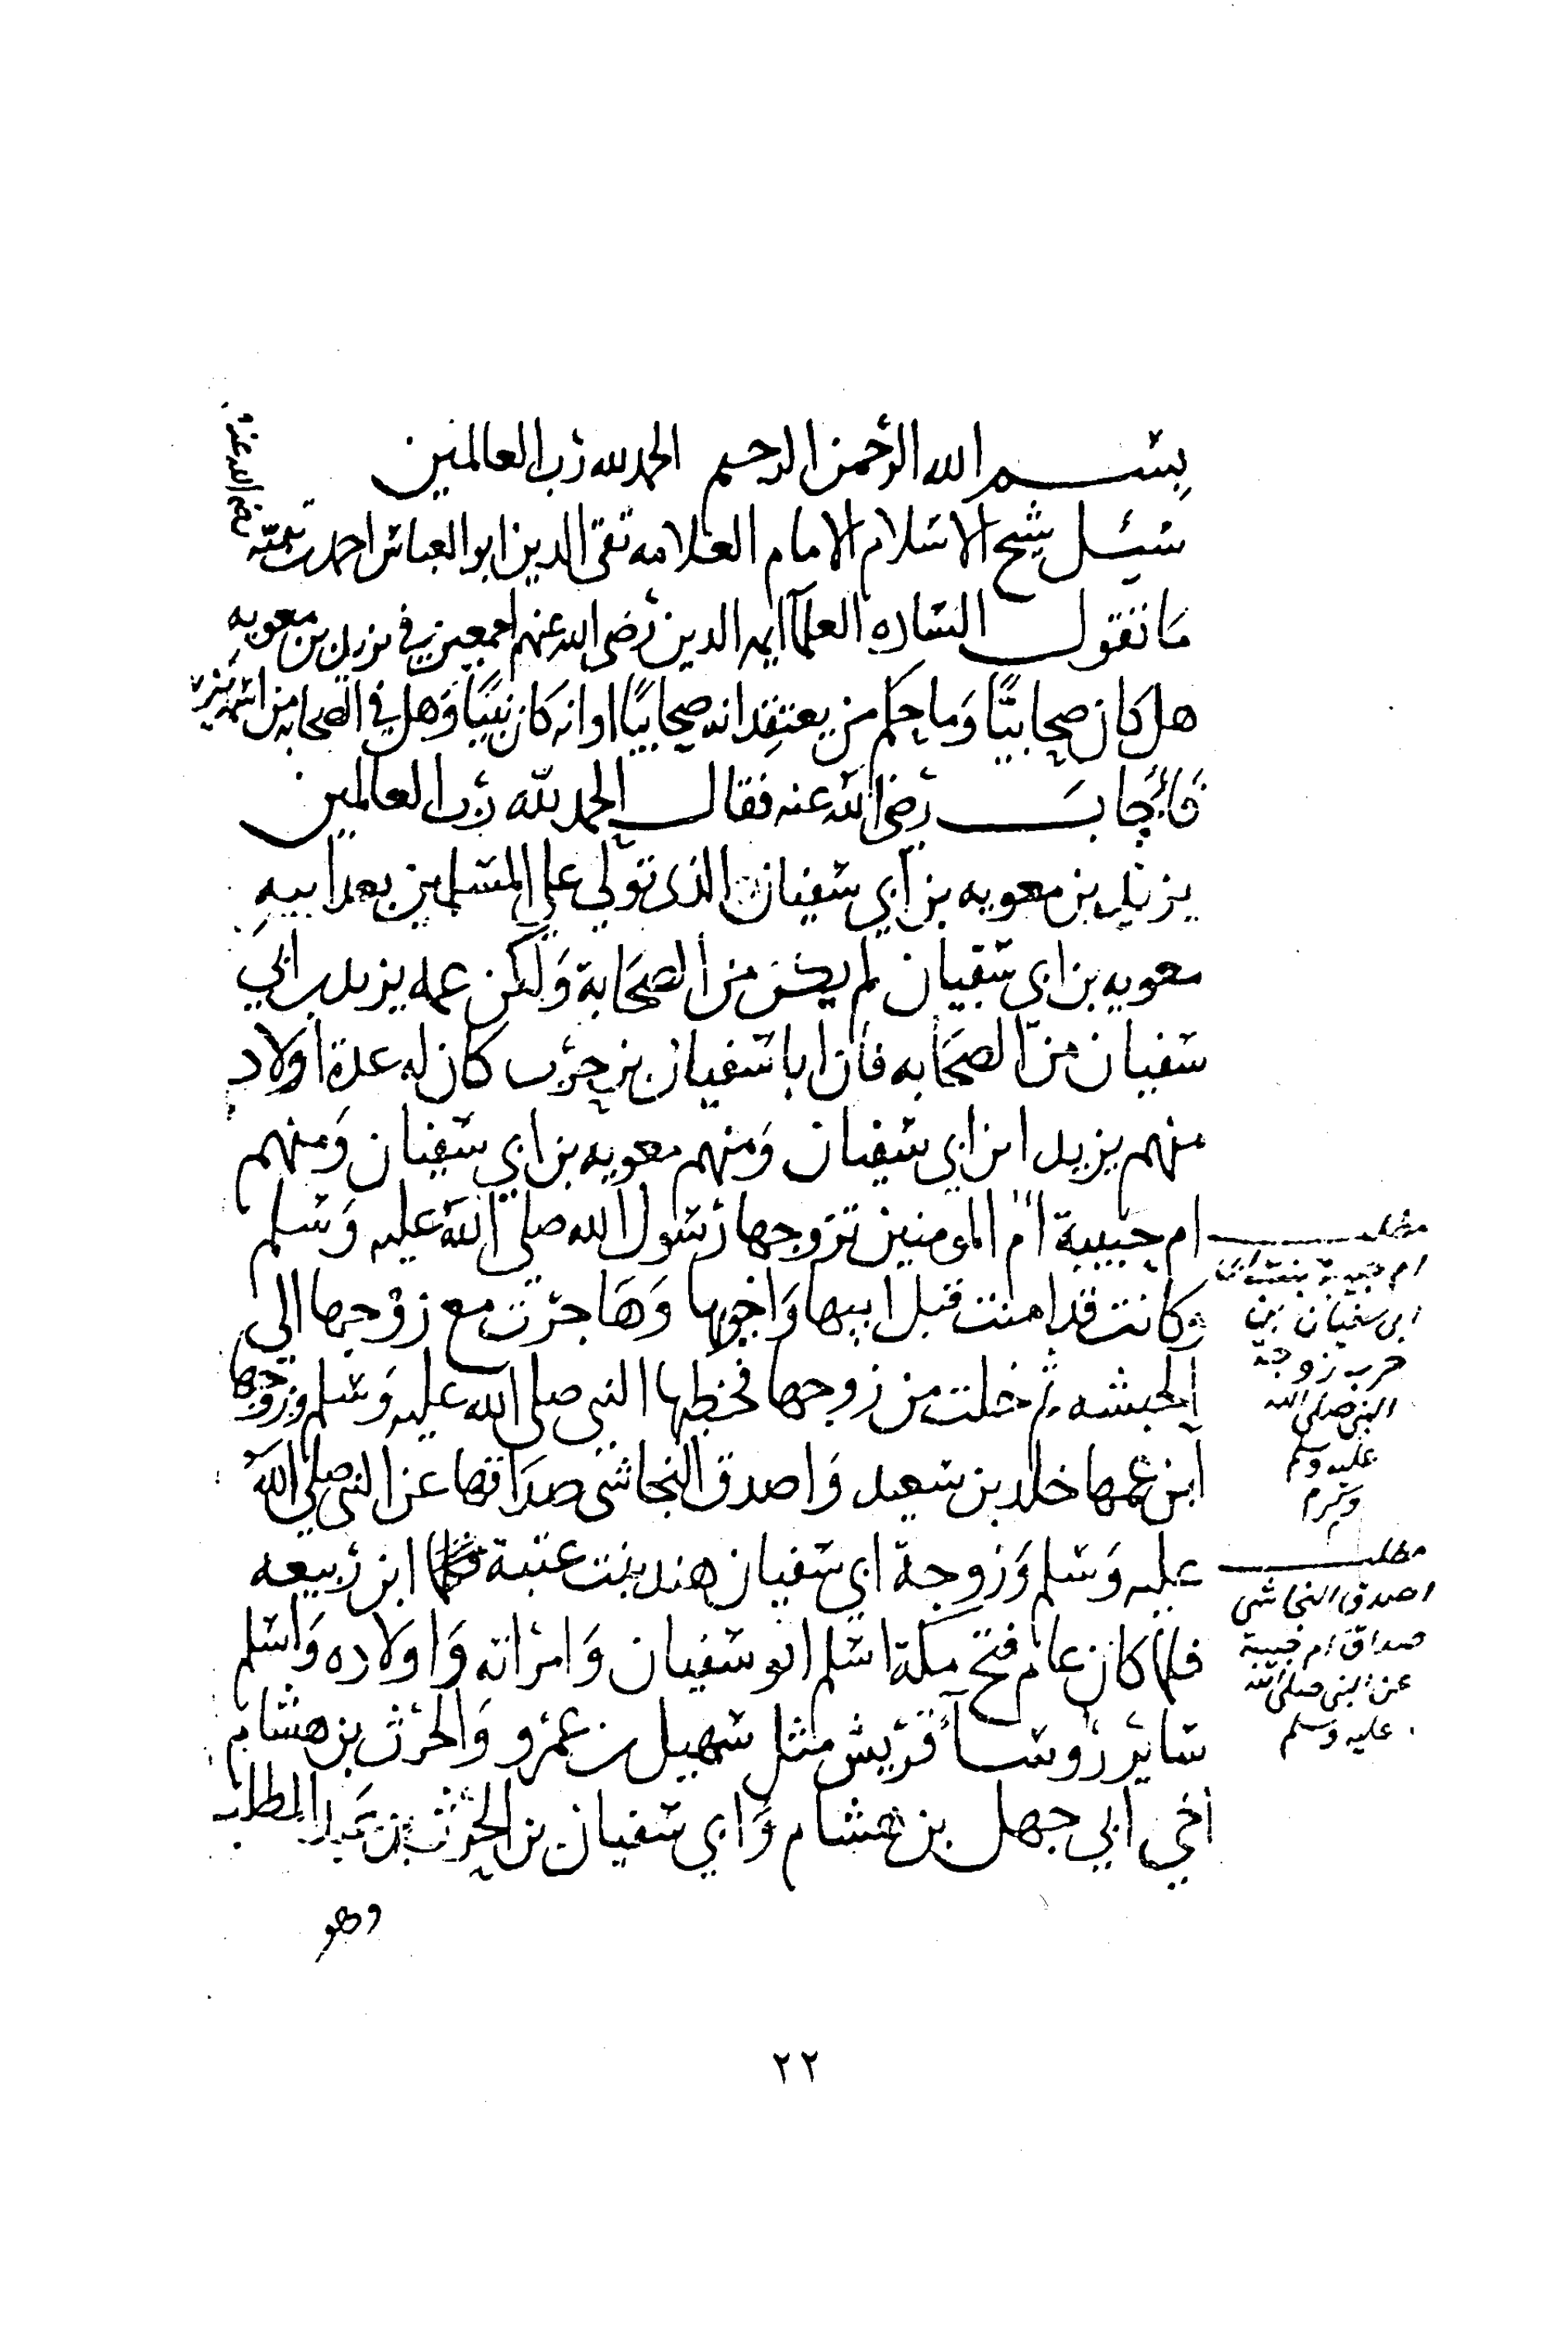 بسم الله الرحمن الرحيم الحمد لله رب العالمين
سئل شيخ الاسلام الامام العلامه تقي الدين ابو العباس احمد بن تيميه
رضي الله عنه
ما تقول الساده العلمآ ايمه الدين رضي الله عنهم اجمعين في يزيد بن معويه
هل كان صحابيًا وَما حكم من يعتقد انه صحابيًا او انه كان نبيًا وَهل في الصحابه من اسمه يزيد
فَأَجَابَ رضي الله عنه فقال الحمد لله رب العالمين
يزيد بن معويه بن أبي سفيان الذي تولي علي المسلمين بعد ابيه
معويه بن ابي سفيان لم يكن من الصحَابة وَلكن عمه يزيد بن ابي
سفيان من الصحَابه فان ابا سفيان بن حرب كان له عدة اولاد
منهم يزيد ابن ابي سفيان وَمنهم معويه بن ابي سفيان وَمنهم
ام حبيبة ام المومنين تزوجها رسول الله صلى الله عليه وَسلم
وكانت قد امنت قبل ابيها وَاخويها وَهَاجرت مع زوجها الي
الحبشه ثم خلت من زوجها فخطبها النبي صلى الله عليه وَسلم وزوجها
ابن عمها خالد بن سعيد وَاصدق النجاشي صدَاقها عن النبي صلي الله
عليه وَسلم وَزوجة ابي سفيان هند بنت عتبة ابن ربيعه
فلما كان عام فتح مكة اسلم ابو سفيان وَامراته وَاولاده وَاسلم
ساير رؤسآ قريش مثل سهيل بن عمرو وَالحرث بن هشام
اخي ابي جهل بن هشام وَابي سفيان بن الحرث بن عبد المطلب
وهو
مطلب
ام حبيبة بنت
ابي سفيان بن
حرب زوجة
النبي صلى الله
عليه وسلم
وكرم
مطلب
اصدق النجاشي
صداق ام حبيبة
عن النبي صلى الله
عليه وسلم
٢٢